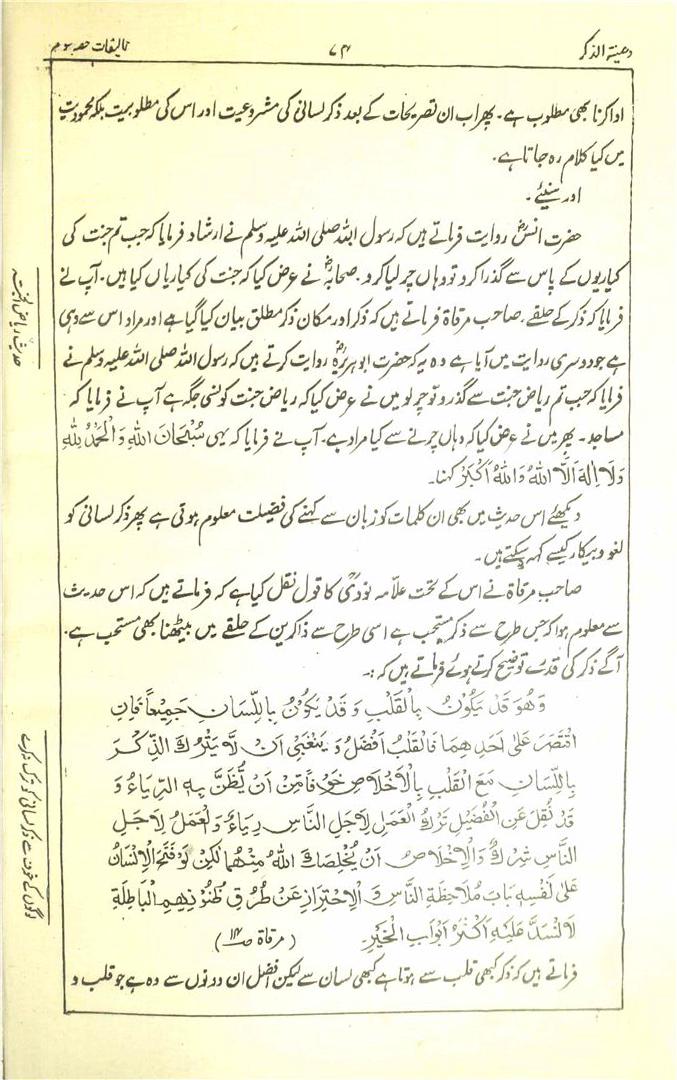 دعیۃ الذکر
۷۴
تالیفات حصہ سوم
ادا کرنا بھی مطلوب ہے۔ پھر اب ان تصریحات کے بعد ذکر لسانی کی مشروعیت اور اس کی مطلوبیت بلکہ محمودیت
میں کیا کلام رہ جاتا ہے۔
اور سنیئے۔
حضرت انسؓ روایت فرماتے ہیں کہ رسول اللہ صلی اللہ علیہ وسلم نے ارشاد فرمایا کہ جب تم جنت کی
کیاریوں کے پاس سے گذرا کرو تو وہاں چر لیا کرو۔ صحابہؓ نے عرض کیا کہ جنت کی کیاریاں کیا ہیں۔ آپ نے
فرمایا کہ ذکر کے حلقے۔ صاحب مرقاۃ فرماتے ہیں کہ ذکر اور مکان ذکر مطلق بیان کیا گیا ہے اور مراد اس سے وہی
ہے جو دوسری روایت میں آیا ہے وہ یہ کہ حضرت ابوہریرہؓ روایت کرتے ہیں کہ رسول اللہ صلی اللہ علیہ وسلم نے
فرمایا کہ جب تم ریاض جنت سے گذرو تو چر لو میں نے عرض کیا کہ ریاض جنت کونسی جگہ ہے آپ نے فرمایا کہ
مساجد۔ پھر میں نے عرض کیا کہ وہاں چرنے سے کیا مراد ہے۔ آپ نے فرمایا کہ یہی سُبْحَانَ اللهِ وَالْحَمْدُ لِلّٰهِ
وَلَا اِلٰهَ اِلَّا اللهُ وَاللهُ اَكْبَرُ کہنا۔
دیکھئے اس حدیث میں بھی ان کلمات کو زبان سے کہنے کی فضیلت معلوم ہوتی ہے پھر ذکر لسانی کو
لغو و بیکار کیسے کہہ سکتے ہیں۔
صاحب مرقاۃ نے اس کے تحت علامہ نوویؒ کا قول نقل کیا ہے کہ فرماتے ہیں کہ اس حدیث
سے معلوم ہوا کہ جس طرح سے ذکر مستحب ہے اسی طرح سے ذاکرین کے حلقے میں بیٹھنا بھی مستحب ہے۔
آگے ذکر کی قدرے توضیح کرتے ہوئے فرماتے ہیں کہ:۔
وَهُوَ قَدْ يَكُوْنُ بِالْقَلْبِ وَقَدْ يَكُوْنُ بِاللِّسَانِ جَمِيْعاً فَاِنِ
اقْتَصَرَ عَلٰى اَحَدِهِمَا فَالْقَلْبُ اَفْضَلُ وَيَنْبَغِىْ اَنْ لَّا يَتْرُكَ الذِّكْرَ
بِاللِّسَانِ مَعَ الْقَلْبِ بِالْاِخْلَاصِ خَوْفًا مِّنْ اَنْ يُّظَنَّ بِهِ الرِّيَاءُ وَ
قَدْ نُقِلَ عَنِ الْفُضَيْلِ تَرْكُ الْعَمَلِ لِاَجْلِ النَّاسِ رِيَاءٌ وَالْعَمَلُ لِاَجْلِ
النَّاسِ شِرْكٌ وَالْاِخْلَاصُ اَنْ يُّخَلِّصَكَ اللهُ مِنْهُمَا لٰكِنْ لَوْ فَتَحَ الْاِنْسَانُ
عَلٰى نَفْسِهٖ بَابَ مُلَاحَظَةِ النَّاسِ وَالْاِحْتِرَازِ عَنْ طُرُقِ ظُنُوْنِهِمِ الْبَاطِلَةِ
لَانْسَدَّ عَلَيْهِ اَكْثَرُ اَبْوَابِ الْخَيْرِ۔ (مرقاۃ ص
فرماتے ہیں کہ ذکر کبھی قلب سے ہوتا ہے کبھی لسان سے لیکن افضل ان دونوں سے وہ ہے جو قلب و
حدیث ریاض الجنۃ
لوگوں کے خوف سے ذکر لسانی کو ترک نہ کرے